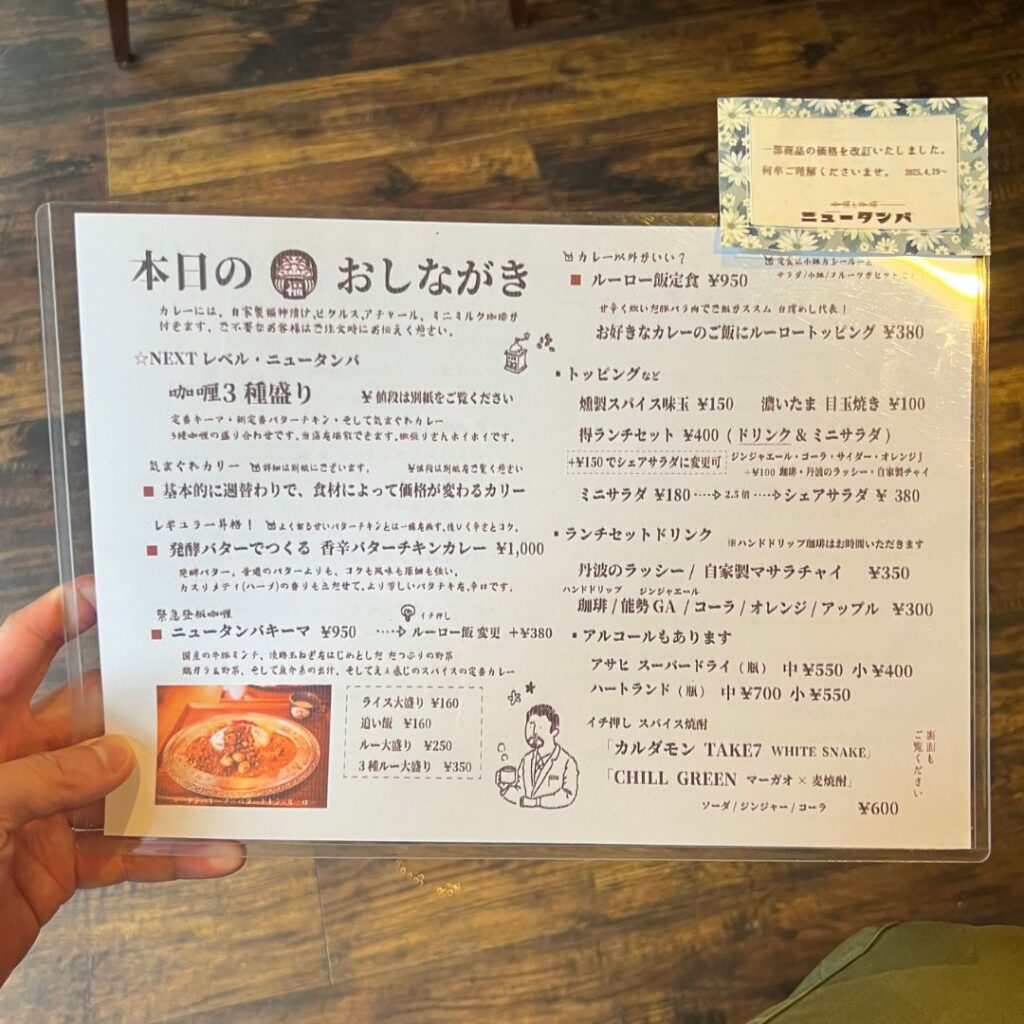 一部商品の価格を改訂いたしました。
何卒ご理解くださいませ。 2025.4.29〜
ニュータンバ
本日の 福 おしながき
カレーには、自家製福神漬け,ピクルス,アチャール、ミニミルク珈琲が
付きます。ご不要なお客様はご注文時にお伝えください。
☆NEXT レベル・ニュータンバ
咖喱3種盛り ¥ 値段は別紙をご覧ください
定番キーマ・新定番バターチキン・そして気まぐれカレー
3種咖喱の盛り合わせです。当店を堪能できます。欲張りさんホイホイです。
気まぐれカリー 詳細は別紙にございます。 ¥値段は別紙をご覧ください
■ 基本的に週替わりで、食材によって価格が変わるカリー
レギュラー昇格! よくあるせいバターチキンとは一線を画す、後いく辛さとコク。
■ 発酵バターでつくる 香辛バターチキンカレー ¥1,000
発酵バター。普通のバターよりも、コクも風味も原価も高い。
カスリメティ(ハーブ)の香りも立たせて、より芳しいバタチキを。辛口です。
緊急登板咖喱
イチ押し
■ ニュータンバキーマ ¥950 ‥‥▷ ルーロー飯 変更 +¥380
国産の牛豚ミンチ、淡路玉ねぎをはじめとした たっぷりの野菜
鶏ガラ&野菜、そして魚介系の出汁、そしてええ感じのスパイスの定番カレー
ライス大盛り ¥160
追い飯 ¥160
ルー大盛り ¥250
3種ルー大盛り ¥350
カレー以外がいい?
■ ルーロー飯定食 ¥950
甘辛く炊いた豚バラ肉でご飯がススム 台湾めし代表!
お好きなカレーのご飯にルーロートッピング ¥380
・トッピングなど
燻製スパイス味玉 ¥150 濃いたま 目玉焼き ¥100
得ランチセット ¥400 (ドリンク & ミニサラダ)
+¥150でシェアサラダに変更可
ジンジャエール・コーラ・サイダー・オレンジ
+¥100 珈琲・丹波のラッシー・自家製チャイ
ミニサラダ ¥180 ‥‥▷ 2.5倍 ‥‥▷ シェアサラダ ¥ 380
・ランチセットドリンク ※ハンドドリップ珈琲はお時間いただきます
丹波のラッシー / 自家製マサラチャイ ¥350
ハンドドリップ ジンジャエール
珈琲 / 能勢GA / コーラ / オレンジ / アップル ¥300
・アルコールもあります
アサヒ スーパードライ(瓶) 中¥550 小¥400
ハートランド(瓶) 中¥700 小¥550
イチ押し スパイス焼酎
「カルダモン TAKE7 WHITE SNAKE」
「CHILL GREEN マーガオ × 麦焼酎」
ソーダ / ジンジャー / コーラ ¥600
裏面も
ご覧ください